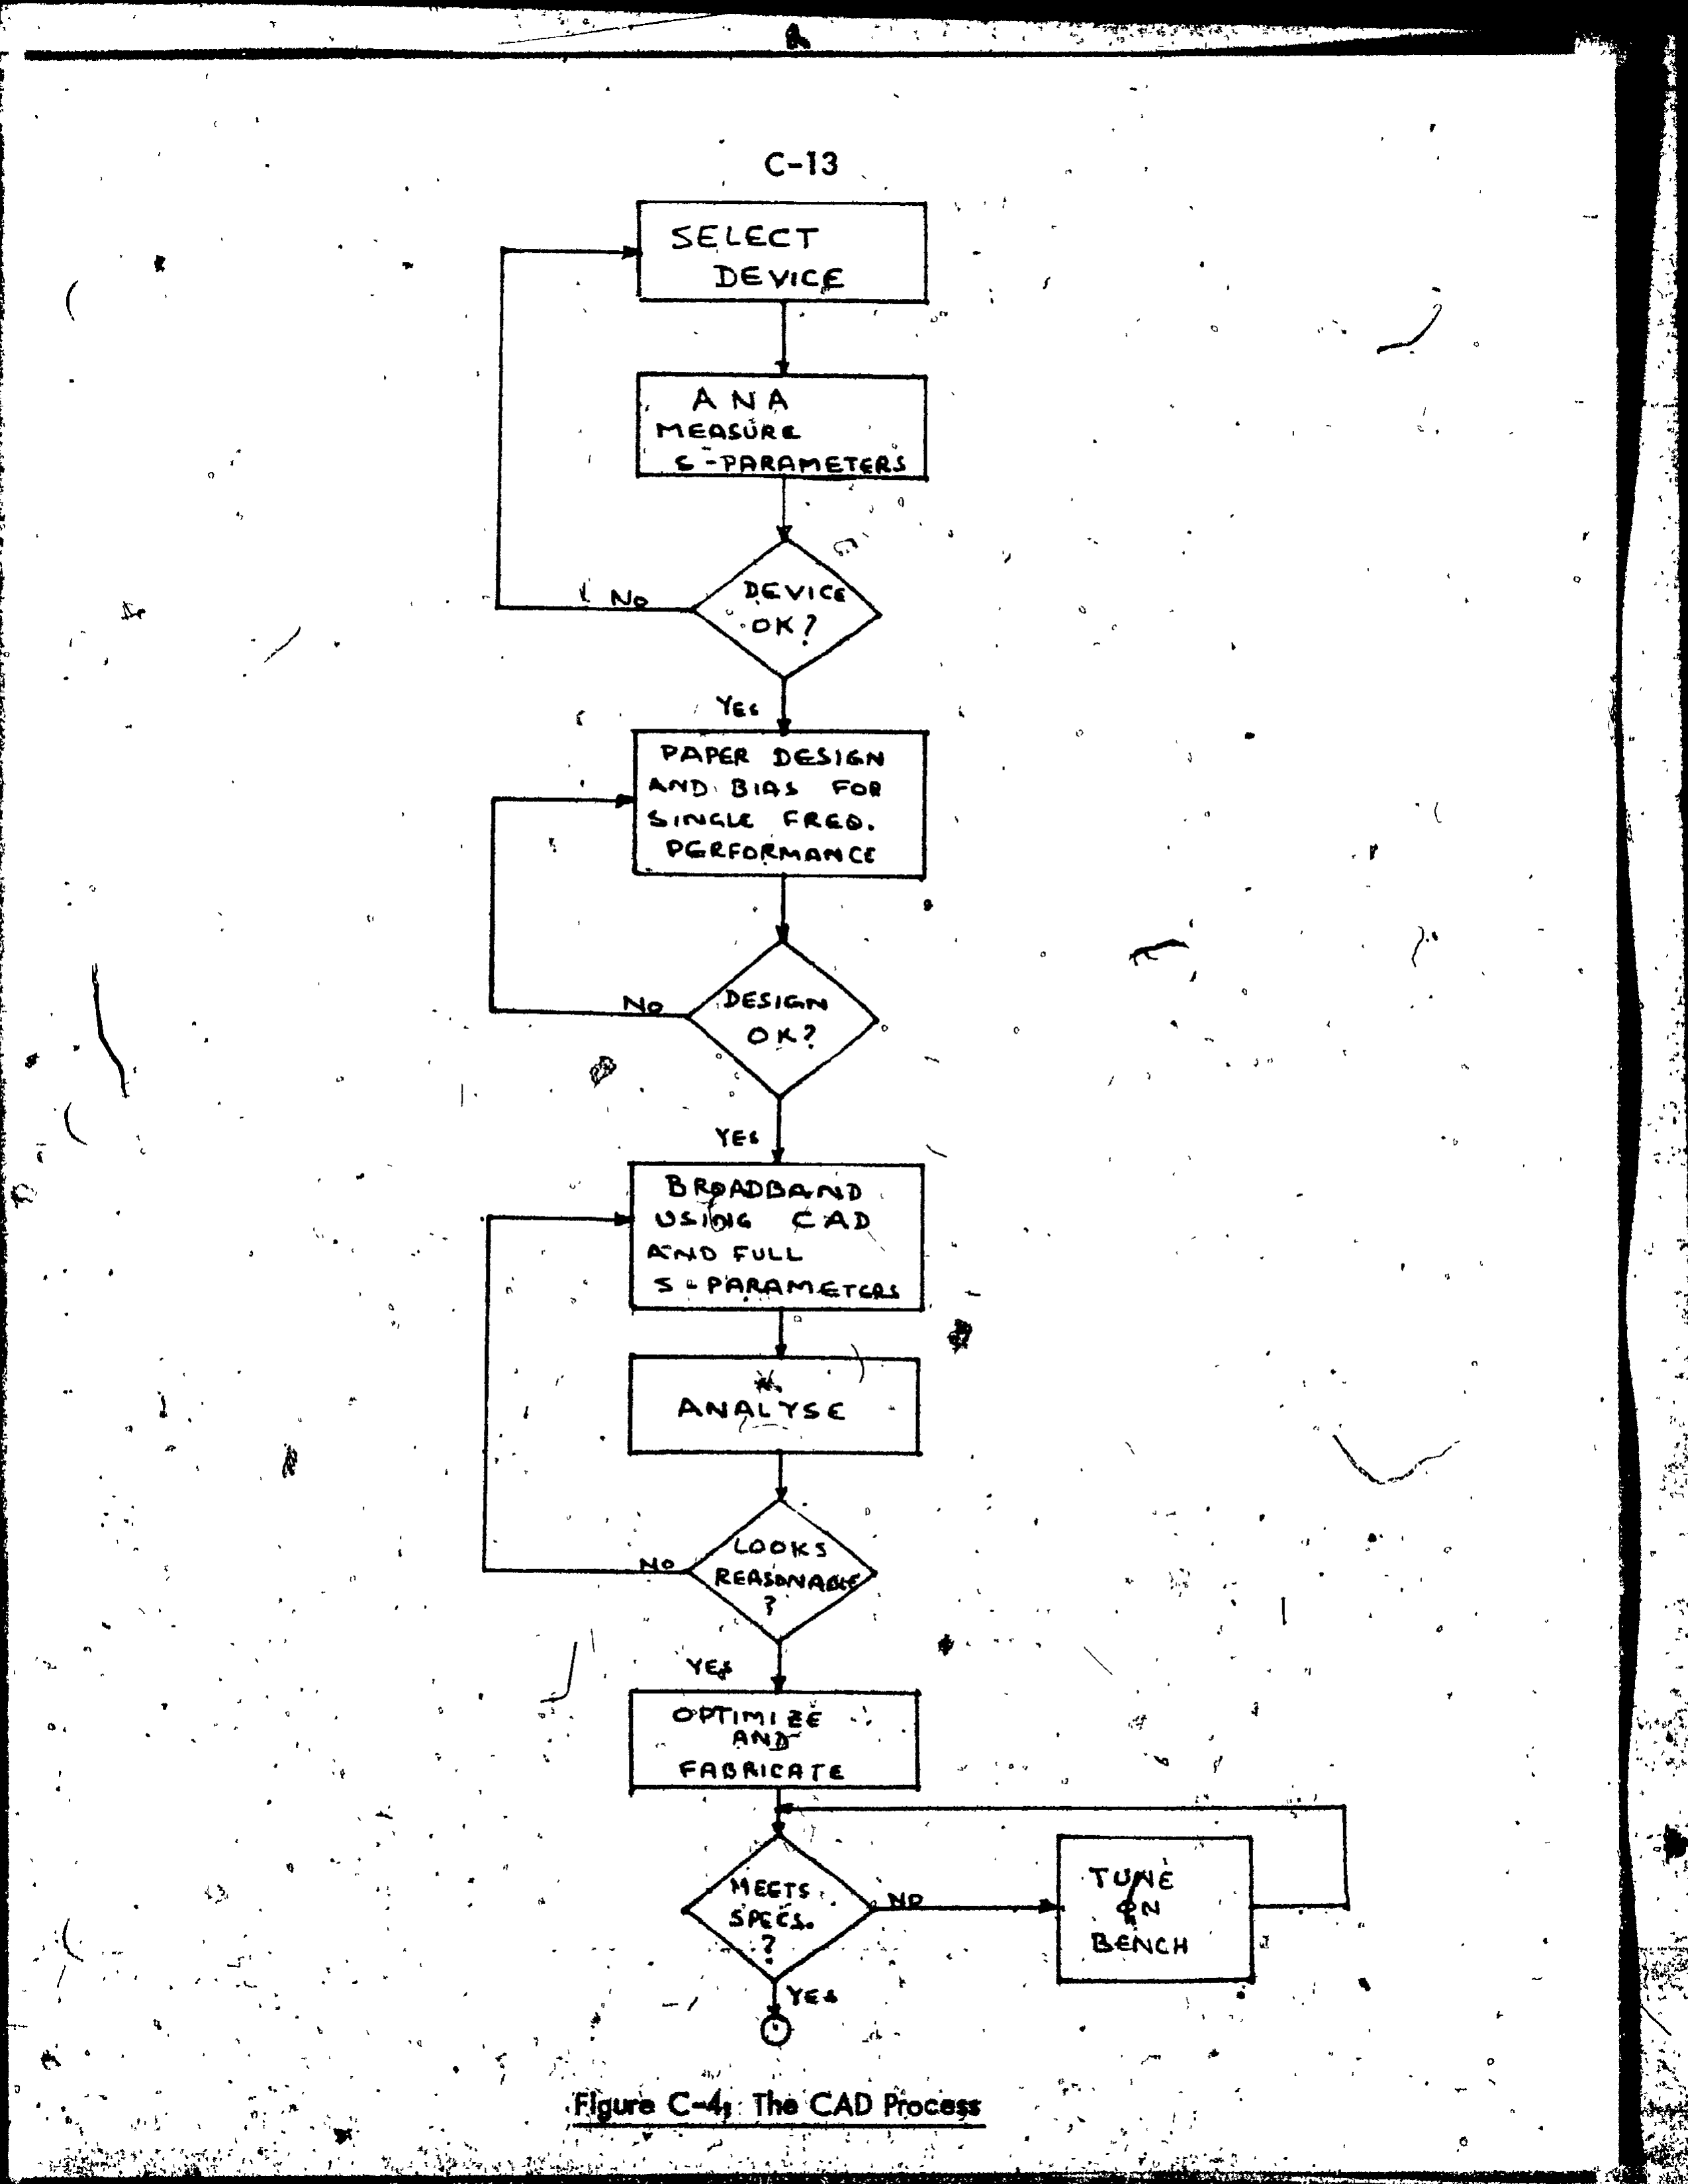 C-13
SELECT
DEVICE
ANA
MEASURE
S-PARAMETERS
DEVICE
OK?
NO
YES
PAPER DESIGN
AND BIAS FOR
SINGLE FREQ.
PERFORMANCE
DESIGN
OK?
NO
YES
BROADBAND
USING CAD
AND FULL
S-PARAMETERS
ANALYSE
LOOKS
REASONABLE
?
NO
YES
OPTIMIZE
AND
FABRICATE
MEETS
SPECS.
?
NO
TUNE
ON
BENCH
YES
Figure C-4: The CAD Process